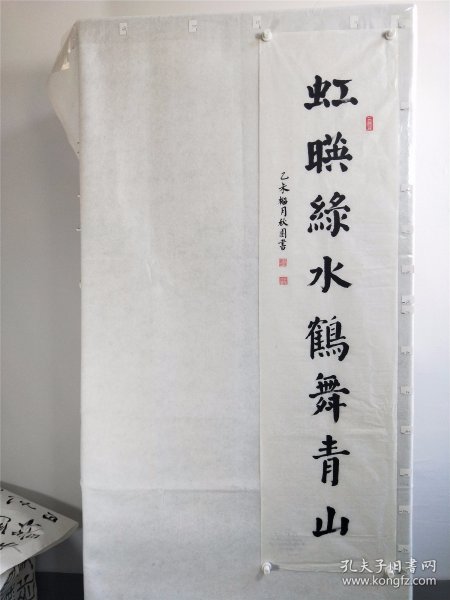 虹暎綠水鶴舞青山
乙未梅月秋園書
孔夫子旧书网
www.kongfz.com